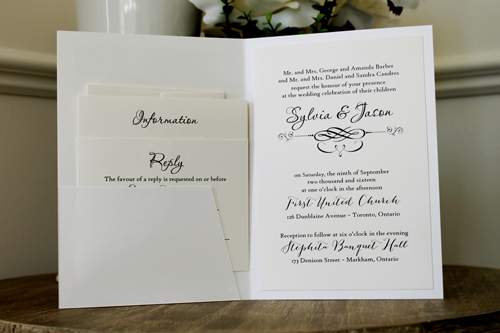 Information
Reply
The favour of a reply is requested on or before
Mr. and Mrs. George and Amanda Barber
and Mr. and Mrs. Daniel and Sandra Cundres
request the honour of your presence
at the wedding celebration of their children
Sylvia & Jason
on Saturday, the ninth of September
two thousand and sixteen
at one o'clock in the afternoon
First United Church
126 Dunblaine Avenue - Toronto, Ontario
Reception to follow at six o'clock in the evening
Banquet Hall
173 Denison Street - Markham, Ontario